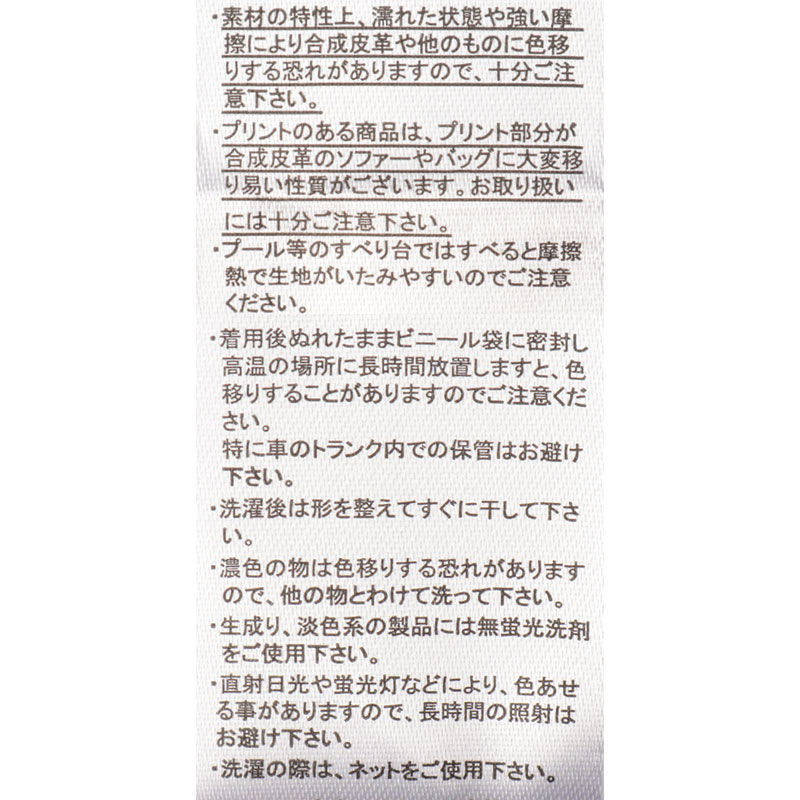 ・素材の特性上、濡れた状態や強い摩
擦により合成皮革や他のものに色移
りする恐れがありますので、十分ご注
意下さい。
・プリントのある商品は、プリント部分が
合成皮革のソファーやバッグに大変移
り易い性質がございます。お取り扱い
には十分ご注意下さい。
・プール等のすべり台ではすべると摩擦
熱で生地がいたみやすいのでご注意
ください。
・着用後ぬれたままビニール袋に密封し
高温の場所に長時間放置しますと、色
移りすることがありますのでご注意くだ
さい。
特に車のトランク内での保管はお避け
下さい。
・洗濯後は形を整えてすぐに干して下さ
い。
・濃色の物は色移りする恐れがあります
ので、他の物とわけて洗って下さい。
・生成り、淡色系の製品には無蛍光洗剤
をご使用下さい。
・直射日光や蛍光灯などにより、色あせ
る事がありますので、長時間の照射は
お避け下さい。
・洗濯の際は、ネットをご使用下さい。